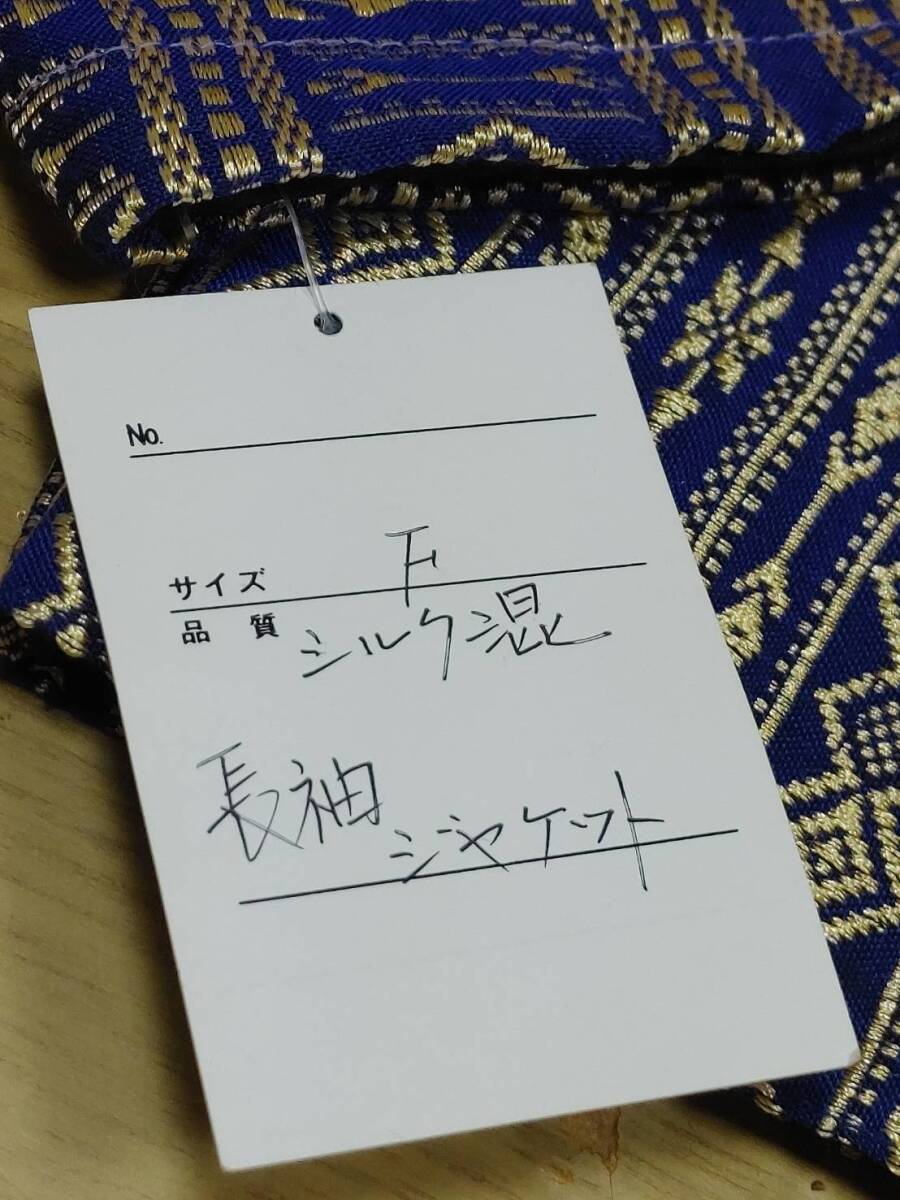 No.
サイズ F
品質 シルク混
長袖
ジャケット